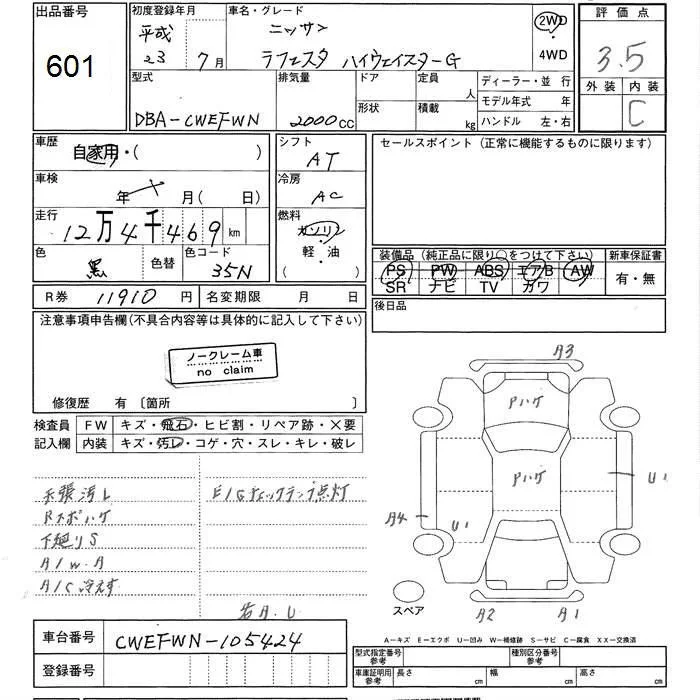 出品番号
601
初度登録年月
平成
23 7月
車名・グレード
ニッサン
ラフェスタ ハイウェイスターG
2WD
・
4WD
評価点
3.5
外装 内装
C
型式
DBA-CWEFWN
排気量
2000cc
ドア
形状
定員
人
積載
kg
ディーラー・並 行
モデル年式 年
ハンドル 左・右
車歴
自家用・( )
車検
年 月(日)
走行
12万4千469km
色
黒
色替
色コード
35N
シフト
AT
冷房
AC
燃料
ガソリン
・
軽・油
( )
セールスポイント(正常に機能するものに限ります)
装備品(純正品に限り○をつけて下さい)
PS PW ABS エアB AW
SR ナビ TV カワ
新車保証書
有・無
R券 11910円
名変期限 月 日
後日品
注意事項申告欄(不具合内容等は具体的に記入して下さい)
ノークレーム車
no claim
修復歴 有〔箇所 〕
検査員
記入欄
FW キズ・飛石・ヒビ割・リペア跡・X要
内装 キズ・汚レ・コゲ・穴・スレ・キレ・破レ
天張汚レ
Rスポハゲ
下廻りS
A/W.A
A/C冷えず
E/Gチェックランプ点灯
若A.U
A3
Pハゲ
Pハゲ
U1
A4
U1
A2
A1
スペア
A-キズ E-エクボ U-凹み W-補修跡 S-サビ C-腐食 XX-交換済
車台番号
CWEFWN-105424
登録番号
型式指定番号
参考
種別区分番号
参考
車庫証明用
参考
長さ
cm
幅
cm
高さ
cm